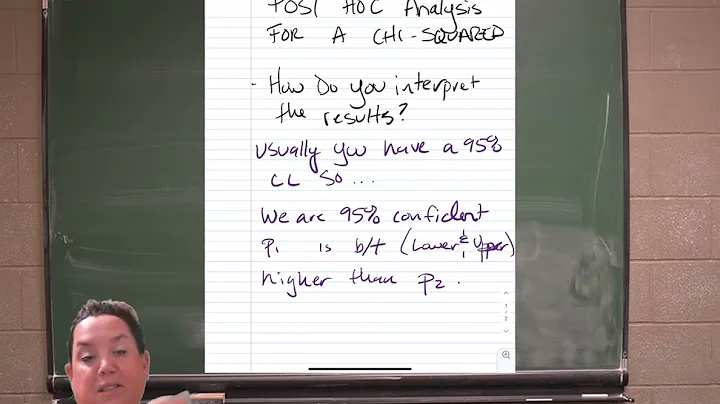 POST HOC Analysis
FOR A CHI-SQUARED
- How Do you interpret
the results?
usually you have a 95%
CL SO ...
We are 95% confident
p₁ is b/t (Lower & Upper)
higher than p₂.
1/2